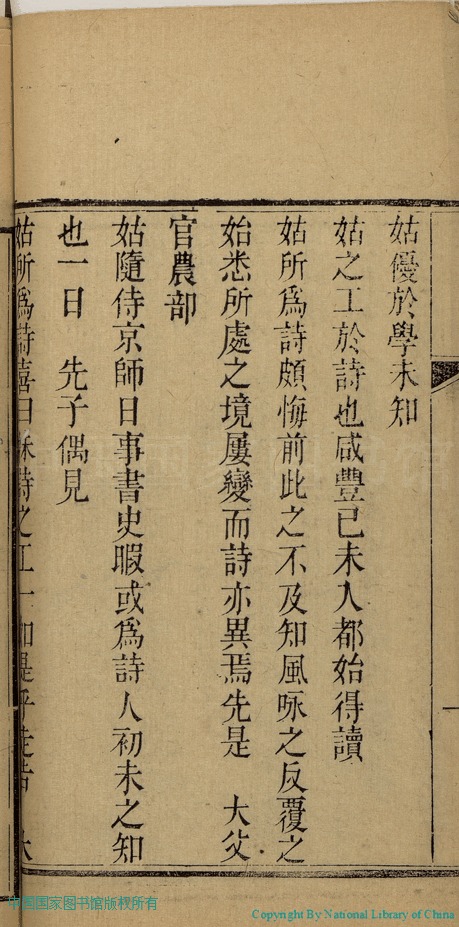 姑優於學未知
姑之工於詩也咸豐己未入都始得讀
姑所為詩頗悔前此之不及知風咏之反覆之
始悉所處之境屢變而詩亦異焉先是 大父
官農部
姑隨侍京師日事書史暇或為詩人初未之知
也一日 先子偶見
姑所為詩喜曰妹詩之工一如是乎走告 大
中国国家图书馆版权所有
Copyright By National Library of China